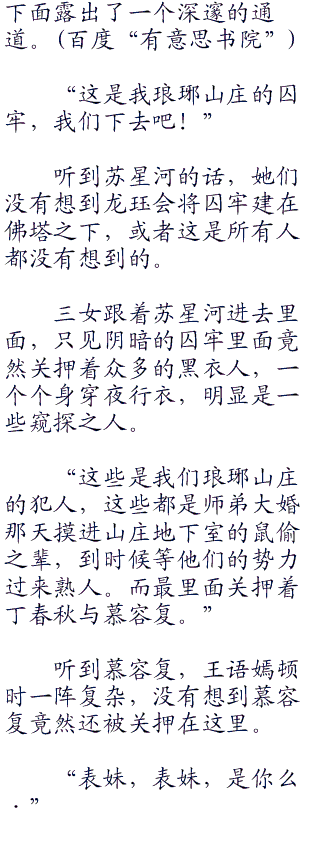 下面露出了一个深邃的通
道。(百度“有意思书院”)
“这是我琅琊山庄的囚
牢，我们下去吧！”
听到苏星河的话，她们
没有想到龙珏会将囚牢建在
佛塔之下，或者这是所有人
都没有想到的。
三女跟着苏星河进去里
面，只见阴暗的囚牢里面竟
然关押着众多的黑衣人，一
个个身穿夜行衣，明显是一
些窥探之人。
“这些是我们琅琊山庄
的犯人，这些都是师弟大婚
那天摸进山庄地下室的鼠偷
之辈，到时候等他们的势力
过来熟人。而最里面关押着
丁春秋与慕容复。”
听到慕容复，王语嫣顿
时一阵复杂，没有想到慕容
复竟然还被关押在这里。
“表妹，表妹，是你么
．”